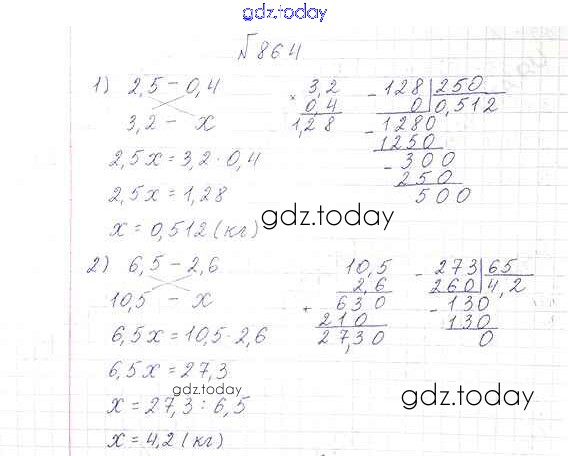 gdz.today
№864
1) 2,5 – 0,4
3,2 – x
2,5x = 3,2 · 0,4
2,5x = 1,28
x = 0,512 (кг)
× 3,2
0,4
1,28
– 128 | 250
0 | 0,512
– 1280
1250
– 300
250
500
gdz.today
2) 6,5 – 2,6
10,5 – x
6,5x = 10,5 · 2,6
6,5x = 27,3
gdz.today
x = 27,3 : 6,5
x = 4,2 (кг)
10,5
2,6
+ 630
210
27,30
– 273 | 65
260 | 4,2
– 130
130
0
gdz.today